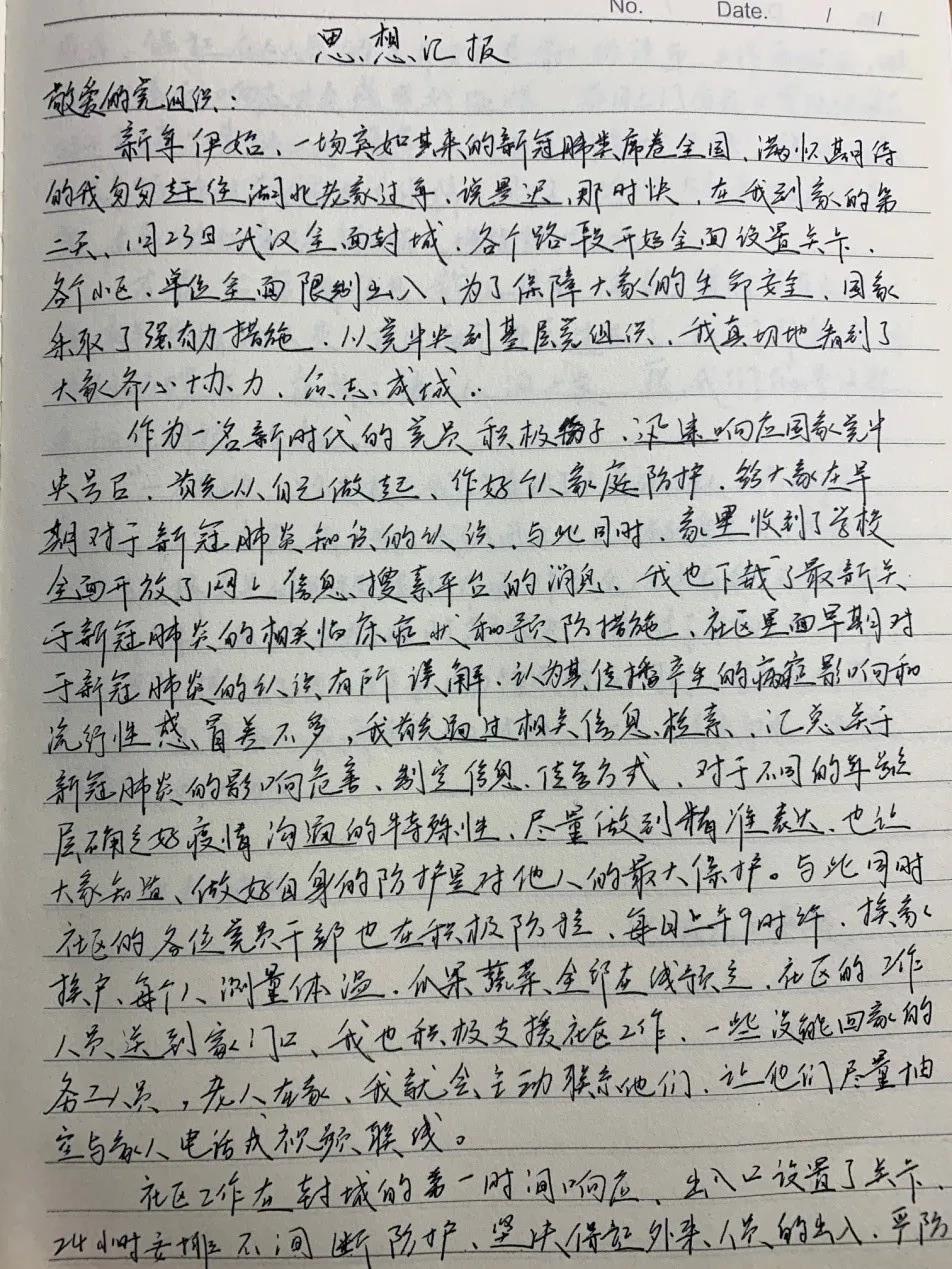 No. Date. / /
思想汇报
敬爱的党组织：
新年伊始、一场突如其来的新冠肺炎席卷全国、满怀期待
的我匆匆赶往湖北老家过年、说是迟、那时快、在我到家的第
二天、1月23日武汉全面封城、各个路段开始全面设置关卡、
各个小区、单位全面限制出入、为了保障大家的生命安全、国家
采取了强有力措施、从党中央到基层党组织、我真切地看到了
大家齐心协力、众志成城.
作为一名新时代的党员积极分子、迅速响应国家党中
央号召、首先从自己做起、作好个人家庭防护、给大家在早
期对于新冠肺炎知识的认识、与此同时、家里收到了学校
全面开放了网上信息搜索平台的消息、我也下载了最新关
于新冠肺炎的相关临床症状和预防措施、社区里面早期对
于新冠肺炎的认识有所误解、认为其传播产生的病症影响和
流行性感冒差不多，我首先通过相关信息检索、汇总关于
新冠肺炎的影响危害、制定信息传答方式、对于不同的年龄
层确定好疫情沟通的特殊性、尽量做到精准表达、也让
大家知道、做好自身的防护是对他人的最大保护。与此同时
社区的各位党员干部也在积极防控、每日上午9时许、挨家
挨户、每个人测量体温、瓜果蔬菜全部在线预定、社区的工作
人员送到家门口、我也积极支援社区工作、一些没能回家的
务工人员，老人在家、我就会主动联系他们、让他们尽量抽
空与家人电话或视频联线。
社区工作在封城的第一时间响应、出入口设置了关卡、
24小时安排不间断防护、坚决保证外来人员的出入、严防